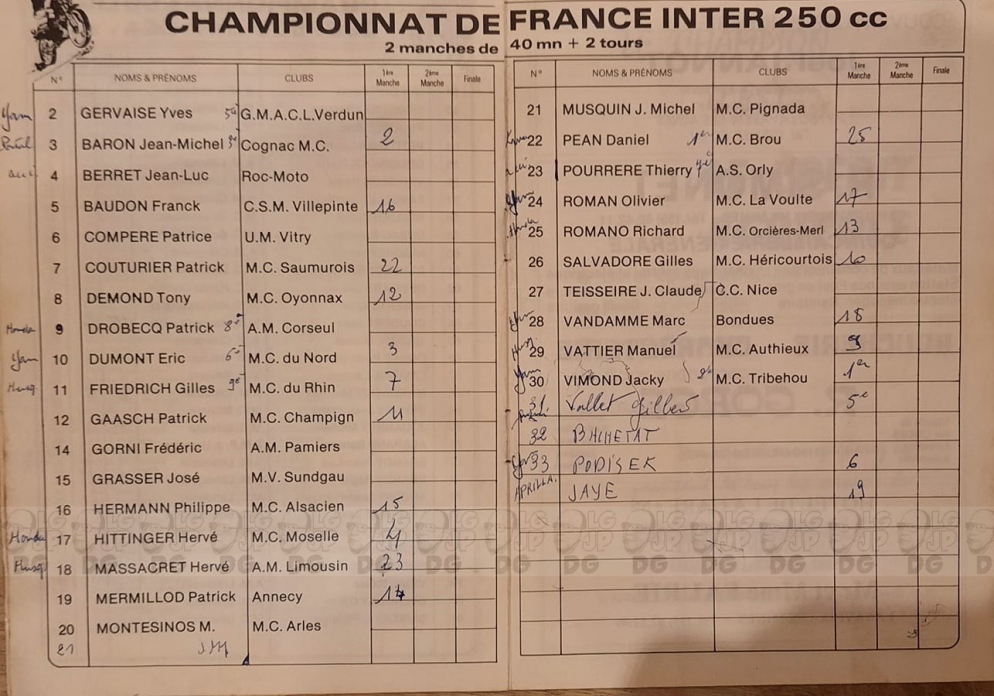 CHAMPIONNAT DE FRANCE INTER 250 cc
2 manches de 40 mn + 2 tours
N° NOMS & PRÉNOMS CLUBS 1ère Manche 2ème Manche Finale
Yam 2 GERVAISE Yves G.M.A.C.L.Verdun
3 BARON Jean-Michel Cognac M.C. 2
4 BERRET Jean-Luc Roc-Moto
5 BAUDON Franck C.S.M. Villepinte 16
6 COMPERE Patrice U.M. Vitry
7 COUTURIER Patrick M.C. Saumurois 22
8 DEMOND Tony M.C. Oyonnax 12
Honda 9 DROBECQ Patrick 8e A.M. Corseul
Yam 10 DUMONT Eric 6e M.C. du Nord 3
Husq 11 FRIEDRICH Gilles M.C. du Rhin 7
12 GAASCH Patrick M.C. Champign 11
14 GORNI Frédéric A.M. Pamiers
15 GRASSER José M.V. Sundgau
16 HERMANN Philippe M.C. Alsacien 15
Honda 17 HITTINGER Hervé M.C. Moselle 4
Husq 18 MASSACRET Hervé A.M. Limousin 23
19 MERMILLOD Patrick Annecy 14
20 MONTESINOS M. M.C. Arles
21
N° NOMS & PRÉNOMS CLUBS 1ère Manche 2ème Manche Finale
21 MUSQUIN J. Michel M.C. Pignada
22 PEAN Daniel 1er M.C. Brou 25
23 POURRERE Thierry A.S. Orly
Yam 24 ROMAN Olivier M.C. La Voulte 17
Honda 25 ROMANO Richard M.C. Orcières-Merl 13
26 SALVADORE Gilles M.C. Héricourtois 10
27 TEISSEIRE J. Claude C.C. Nice
Yam 28 VANDAMME Marc Bondues 18
29 VATTIER Manuel M.C. Authieux 9
Yam 30 VIMOND Jacky M.C. Tribehou 1er
31 Vallet Gilbert 5e
32 BACHETAT
33 PODISEK 6
APRILLA. JAYE 19
LG JP DG